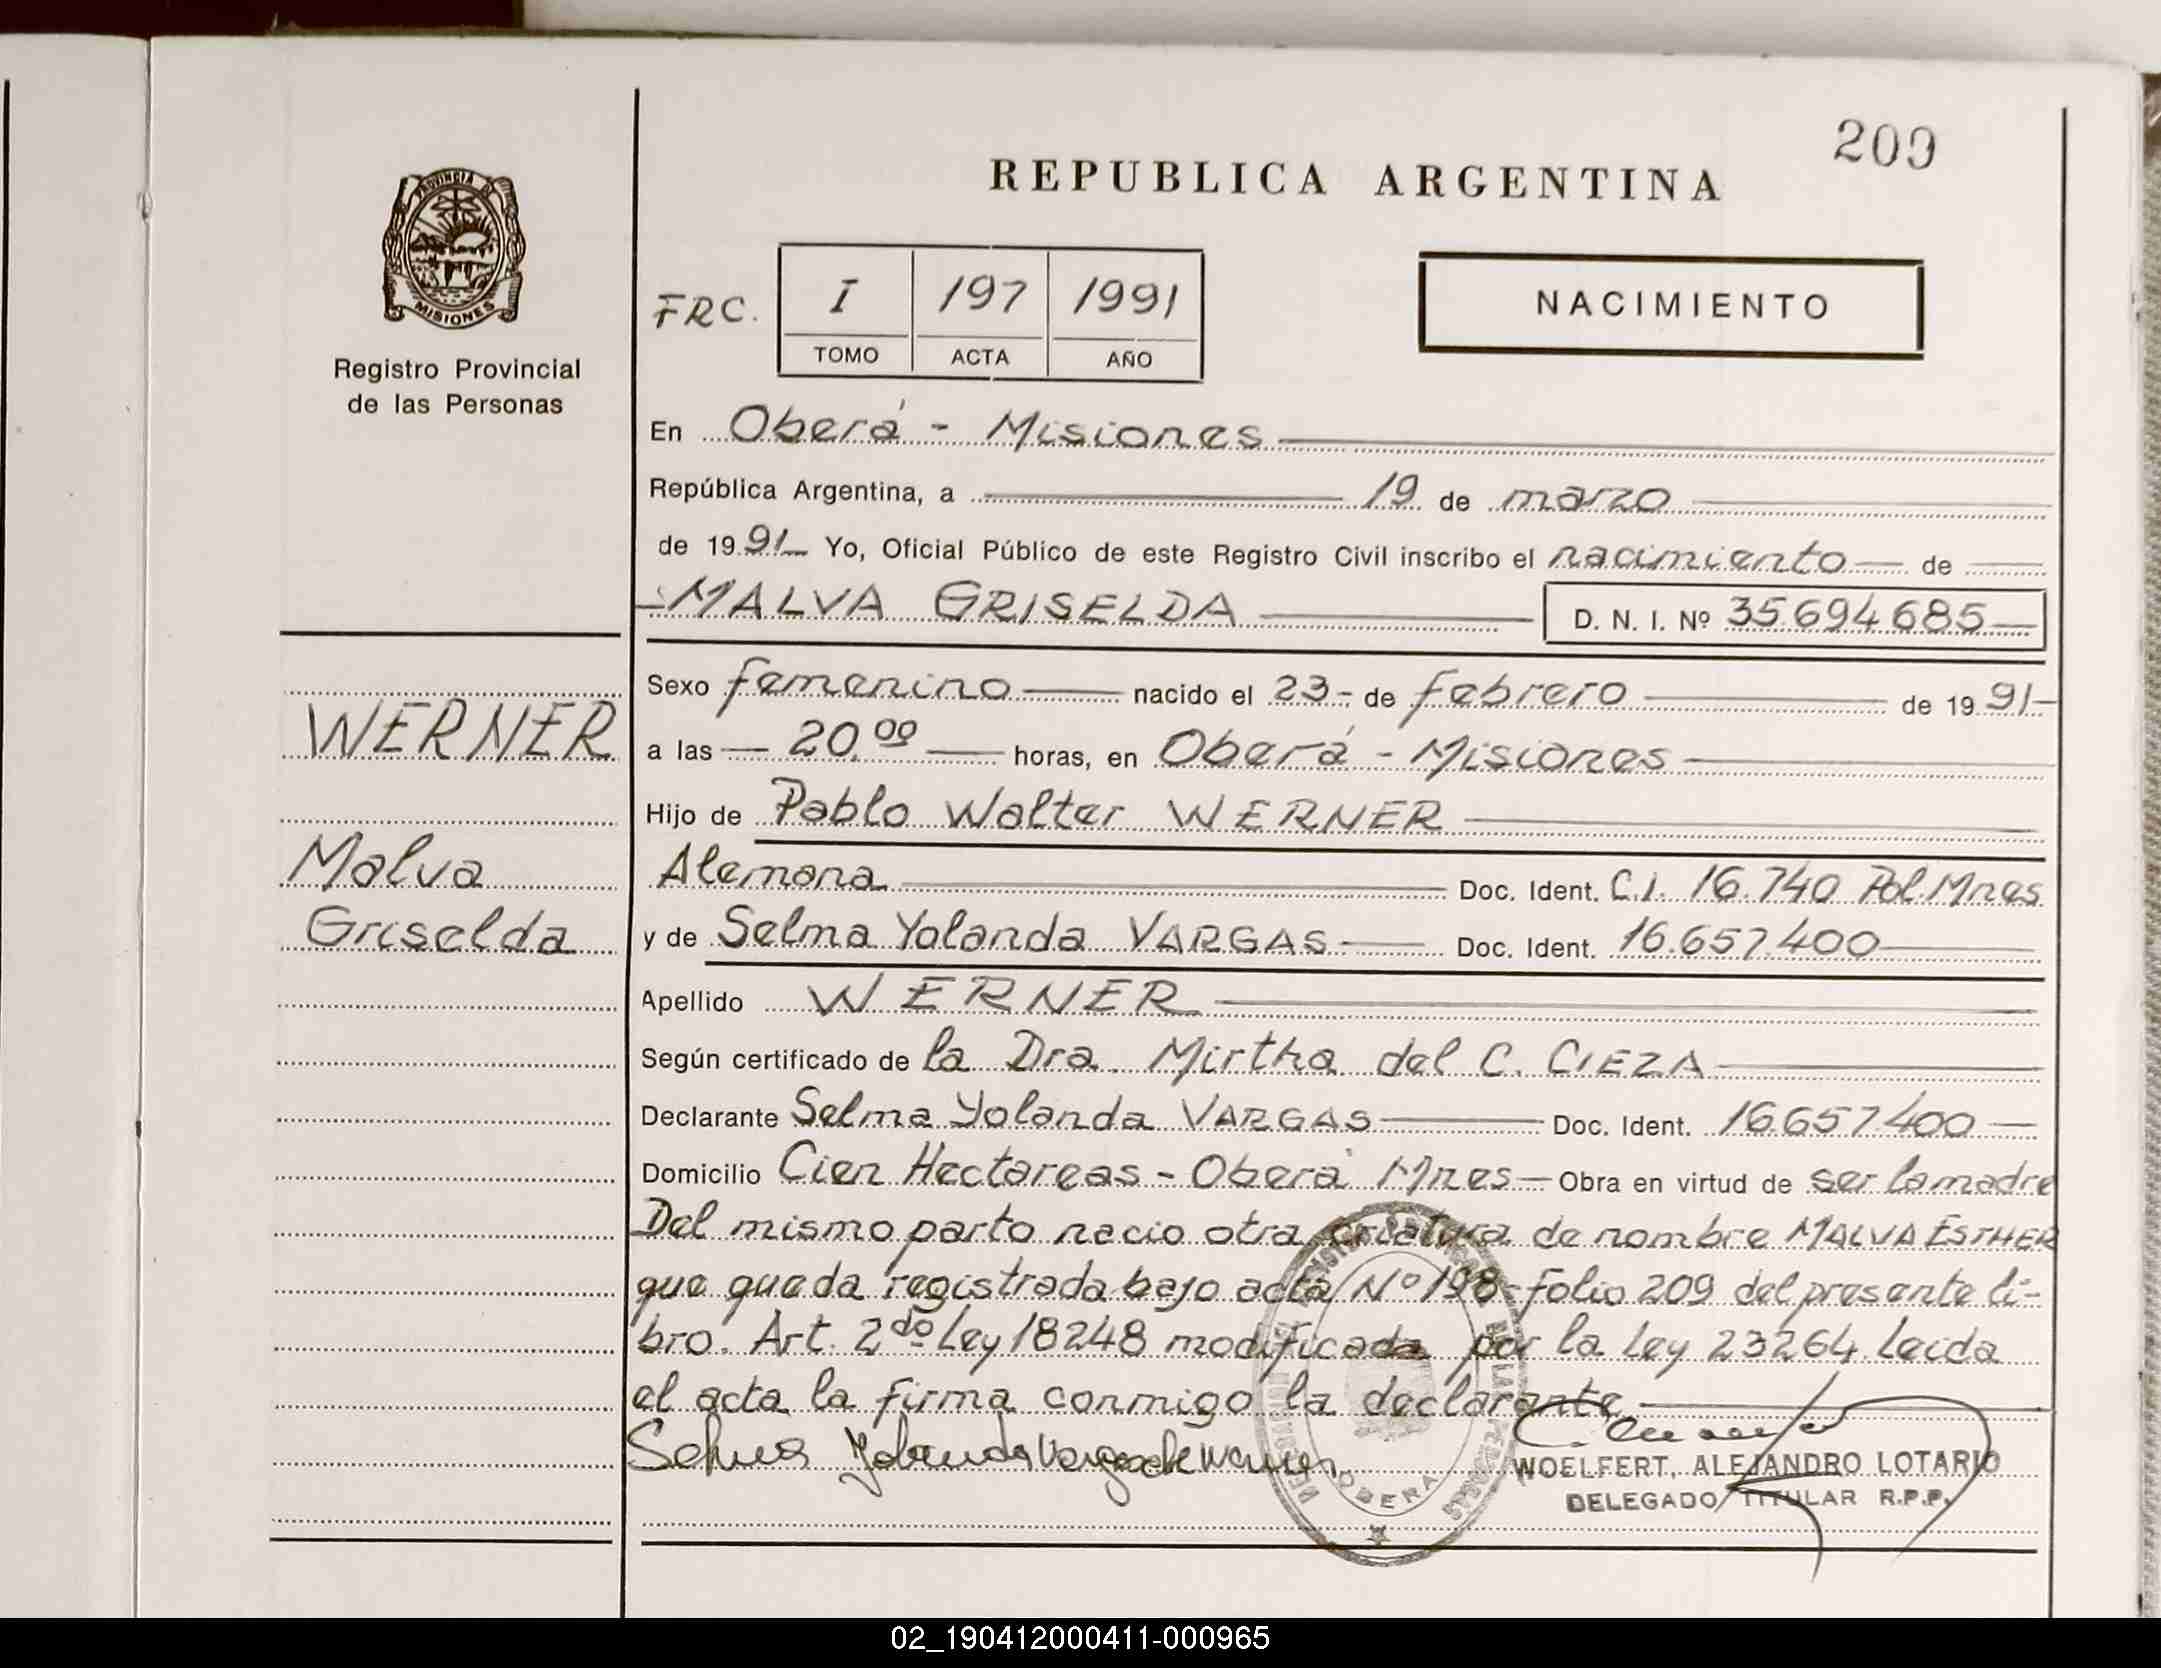 200
REPUBLICA ARGENTINA
PROVINCIA DE
MISIONES
Registro Provincial
de las Personas
FRC.
I 197 1991
TOMO ACTA AÑO
NACIMIENTO
En Oberá - Misiones
República Argentina, a 19 de marzo
de 1991 Yo, Oficial Público de este Registro Civil inscribo el nacimiento de
MALVA GRISELDA D. N. I. Nº 35.694.685
WERNER
Malva
Griselda
Sexo femenino nacido el 23 - de febrero de 1991
a las 20,00 horas, en Oberá - Misiones
Hijo de Pablo Walter WERNER
Alemana Doc. Ident. C.I. 16.740 Pol. Mnes
y de Selma Yolanda VARGAS Doc. Ident. 16.657.400
Apellido WERNER
Según certificado de la Dra. Mirtha del C. CIEZA
Declarante Selma Yolanda VARGAS Doc. Ident. 16.657.400
Domicilio Cien Hectareas - Oberá Mnes Obra en virtud de ser la madre
Del mismo parto nacio otra criatura de nombre MALVA ESTHER
que queda registrada bajo acta Nº 198 - folio 209 del presente li-
bro. Art. 2do Ley 18248 modificada por la Ley 23264. Leida
el acta la firma conmigo la declarante
Selma Yolanda Vargas de Werner
WOELFERT, ALEJANDRO LOTARIO
DELEGADO TITULAR R.P.P.
OBERA
02_190412000411-000965